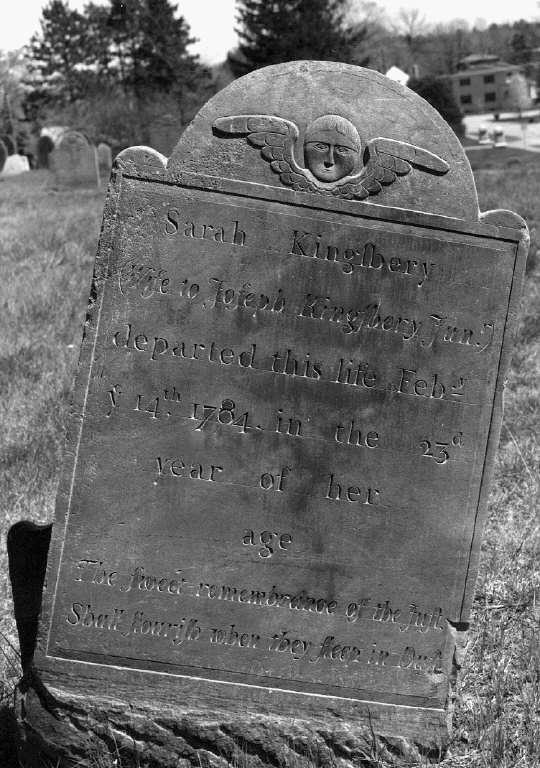 Sarah Kingſbery
(Wife to Joſeph Kingſbery Jun.ʳ)
departed this life Febʸ
yᵉ 14.ᵗʰ 1784. in the 23ᵈ
year of her
age
The ſweet remembrance of the juſt
Shall flouriſh when they ſleep in Duſt